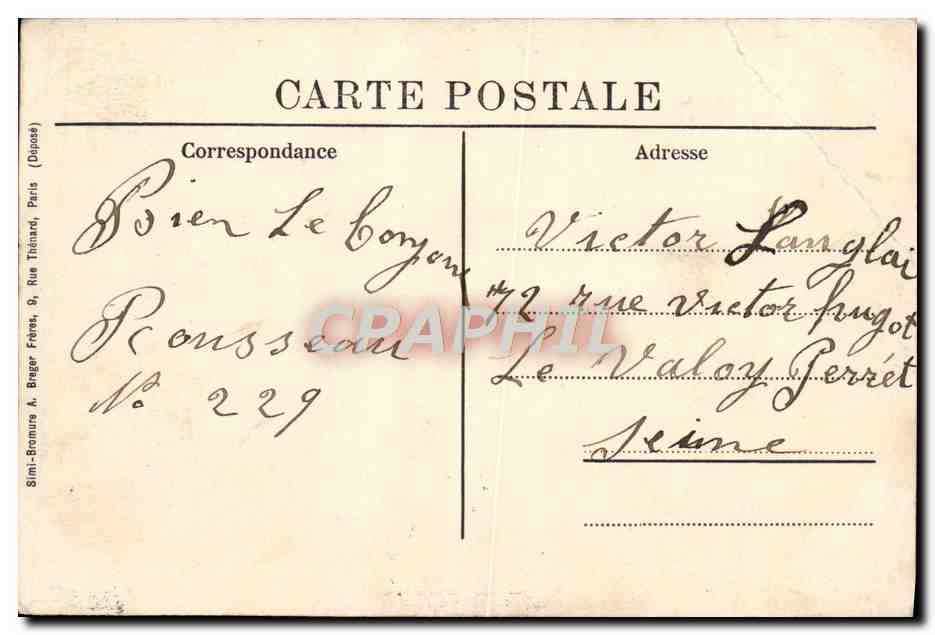 CARTE POSTALE
Correspondance
Adresse
Simi-Bromure A. Breger Frères, 9, Rue Thénard, Paris (Déposé)
Bien Le
Rousseau
No 229
Victor Langlai
72 rue victor hugot
Le Valoy Perrét
Seine
CRAPHIL